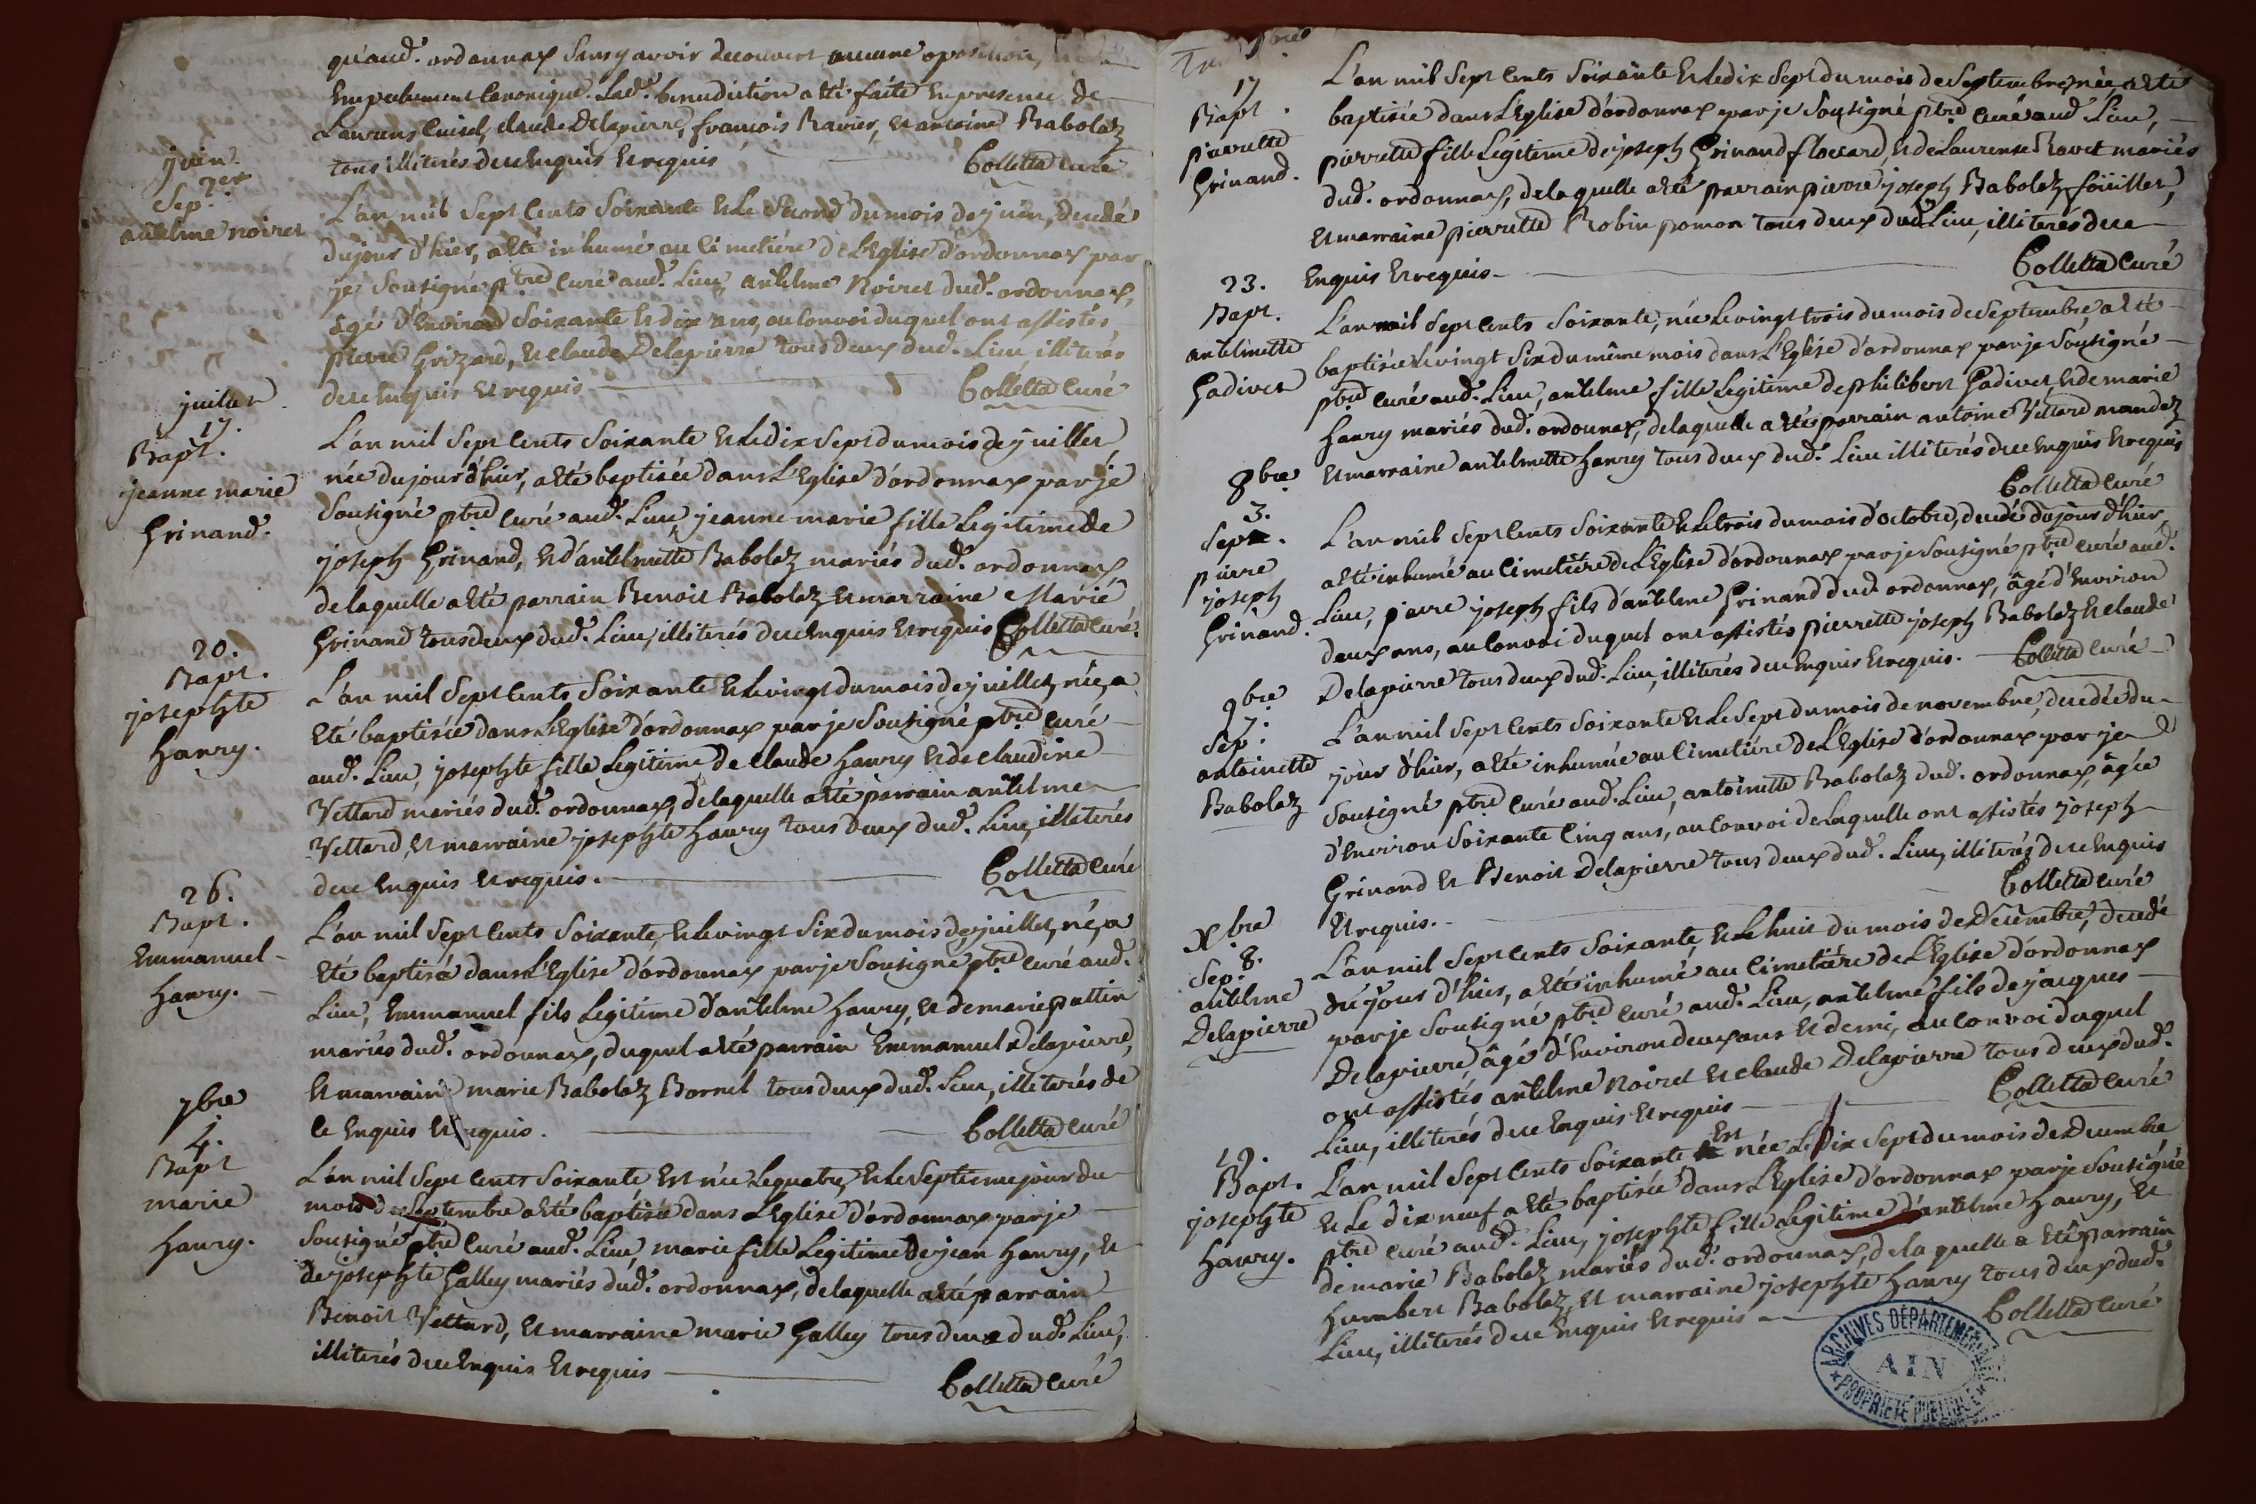 qu'aud.t ordonnax sans y avoir decouvert aucune oposition,
Empechement Canonique. Lad.e benediction a êté faite en presence de
Laurens Cuisel, claude Delapierre, francois Ravier, et antoine Babolaz
tous illiterés de ce Enquis et requis Colletta Curé
juin.
2.er
Sep.re
antelme noiret
L'an mil Sept Cents Soixante et Le Second du mois de juin, decedé
du jour d'hier, a êté inhumé au Cimetiére de L'Eglise d'ordonnax par
je Sousigné ptre Curé aud.t Lieu, antelme Noiret dud.t ordonnax,
âgé d'Environ Soixante et dix ans, au Convoi duquel ont assistés
Pierre Grizard, et claude Delapierre tous deux dud.t Lieu illiterés
de ce Enquis et requis Colletta Curé
juillet
17.
Bapt.
jeanne marie
Grinand.
L'an mil Sept Cents Soixante et Le dix Sept du mois de juillet
née du jour d'hier, a êté baptisée dans L'Eglise d'ordonnax par je
Sousigné ptre Curé aud.t Lieu, jeanne marie fille Legitime de
joseph Grinand, et d'antelmette Babolaz mariés dud.t ordonnax
de laquelle a êté parrain Benoit Babolaz et marraine Marie
Grinand tous deux dud.t Lieu, illiterés de ce Enquis et requis Colletta Curé.
20.
Bapt.
josephte
hanry.
L'an mil Sept Cents Soixante et Le vingt du mois de juillet, née, a
êté baptisée dans L'Eglise d'ordonnax par je Sousigné ptre Curé
aud.t Lieu, josephte fille Legitime de claude hanry et de claudine
Vettard mariés dud.t ordonnax, de laquelle a êté parrain antelme
Vettard, et marraine josephte hanry tous deux dud.t Lieu, illiterés
de ce Enquis et requis. Colletta Curé
26.
Bapt.
Emmanuel
hanry.
L'an mil Sept Cents Soixante, et Le vingt Six du mois de juillet, né, a
êté baptisé dans L'Eglise d'ordonnax par je Sousigné ptre Curé aud.t
Lieu, Emmanuel fils Legitime d'antelme hanry, et de marie pattin
mariés dud.t ordonnax, duquel a êté parrain Emmanuel Delapierre,
et marraine marie Babolaz Bornel tous deux dud.t Lieu, illiterés de
Ce Enquis et requis. Colletta Curé
7bre
4.
Bapt
marie
hanry.
L'an mil Sept Cents Soixante Est née Le quatre, et Le Septieme jour du
mois de Septembre a êté baptisée dans L'Eglise d'ordonnax par je
Sousigné ptre Curé aud.t Lieu marie fille Legitime de jean hanry, et
de josephte Galley mariés dud.t ordonnax, de laquelle a êté parrain
Benoit Vettard, et marraine marie Galley tous deux dud.t Lieu,
illiterés de ce Enquis et requis Colletta Curé
17
Bapt.
pierrette
Grinand.
L'an mil Sept Cents Soixante et Le dix Sept du mois de Septembre, née a êté
baptisée dans L'Eglise d'ordonnax par je Sousigné ptre Curé aud.t Lieu,
pierrette fille Legitime de joseph Grinand flocard, et de Laurense Ravet mariés
dud.t ordonnax, de laquelle a êté parrain pierre joseph Babolaz foüillet,
et marraine pierrette Robin pomon tous deux dud.t Lieu, illiterés de ce
Enquis et requis. Colletta Curé
23.
Bapt.
antelmette
Gadivet
L'an mil Sept Cents Soixante, née Le vingt trois du mois de Septembre a êté
baptisée Le vingt Six du même mois dans L'Eglise d'ordonnax par je Sousigné
ptre Curé aud.t Lieu, antelme fille Legitime de philibert Gadivet et de marie
hanry mariés dud.t ordonnax, de laquelle a êté parrain antoine Vettard mandez
et marraine antelmette hanry tous deux dud.t Lieu illiterés de ce Enquis et requis
Colletta Curé
8bre
3.
Sep.re
pierre
joseph
Grinand.
L'an mil Sept Cents Soixante et Le trois du mois d'octobre, decedé du jour d'hier,
a êté inhumé au Cimetière de L'Eglise d'ordonnax par je Sousigné ptre Curé aud.t
Lieu, pierre joseph fils d'antelme Grinand dud.t ordonnax, âgé d'Environ
deux ans, au Convoi duquel ont assistés pierrette joseph Babolaz et claude
Delapierre tous deux dud.t Lieu, illiterés de ce Enquis et requis. Colletta Curé
9bre
7.
Sep.re
antoinette
Babolaz
L'an mil Sept Cents Soixante et Le Sept du mois de novembre, decedée du
jour d'hier, a êté inhumée au Cimetiére de L'Eglise d'ordonnax par je
Sousigné ptre Curé aud.t Lieu, antoinette Babolaz dud.t ordonnax, âgée
d'Environ Soixante Cinq ans, au Convoi de Laquelle ont assistés joseph
Grinand et Benoit Delapierre tous deux dud.t Lieu, illiterés de ce Enquis
et requis. Colletta Curé
Xbre
Sep. 8.
antelme
Delapierre
L'an mil Sept Cents Soixante, et Le huit du mois de décembre, decedé
du jour d'hier, a êté inhumé au Cimetière de L'Eglise d'ordonnax
par je Sousigné ptre Curé aud.t Lieu, antelme fils de jacques
Delapierre âgé d'Environ deux ans et demi, au Convoi duquel
ont assistés antelme Noiret et claude Delapierre tous deux dud.t
Lieu, illiterés de ce Enquis et requis Colletta Curé
19.
Bapt.
josephte
hanry.
L'an mil Sept Cents Soixante Est née Le dix Sept du mois de decembre
et Le dix neuf a êté baptisée dans L'Eglise d'ordonnax par je Sousigné
ptre Curé aud.t Lieu, josephte fille Legitime d'antelme hanry, et
de marie Babolaz mariés dud.t ordonnax, de laquelle a êté parrain
humbert Babolaz, et marraine josephte hanry tous deux dud.t
Lieu, illiterés de ce Enquis et requis Colletta Curé
ARCHIVES DÉPARTEMENTALES
AIN
PROPRIÉTÉ PUBLIQUE